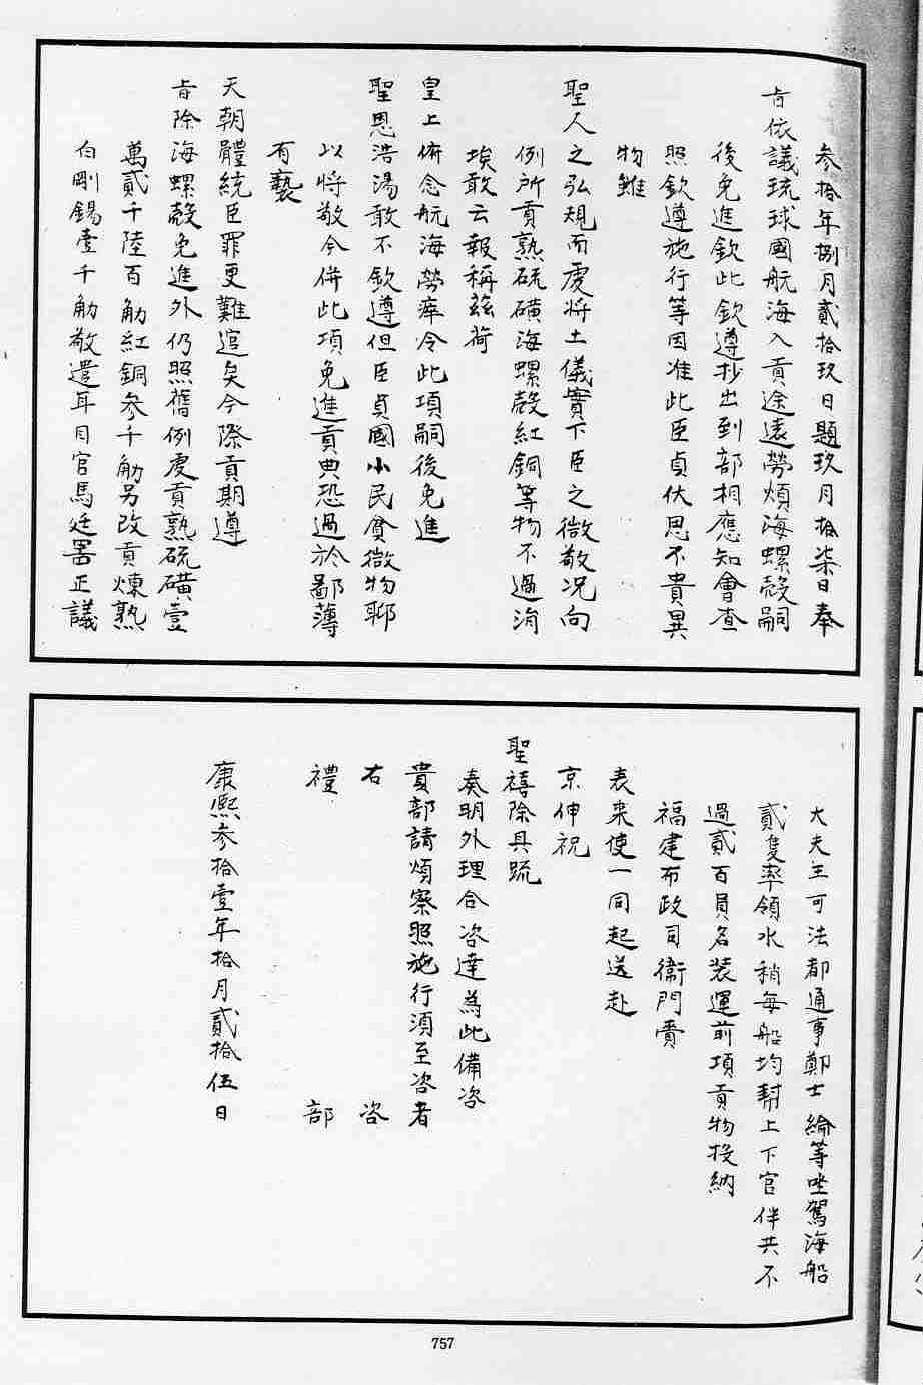 參拾年捌月貳拾玖日題玖月拾柒日奉
旨依議琉球國航海入貢途遠勞煩海螺殼嗣
後免進欽此欽遵抄出到部相應知會查
照欽遵施行等因准此臣貞伏思不貴異
物雖
聖人之弘規而虔將土儀實下臣之微敬况向
例所貢熟硫磺海螺殼紅銅等物不過涓
埃敢云報稱茲荷
皇上俯念航海勞瘁冷此項嗣後免進
聖恩浩湯敢不欽遵但臣貞國小民貧微物聊
以將敬今併此項免進貢典恐過於鄙薄
有褻
天朝體統臣罪更難逭矣今際貢期遵
旨除海螺殼免進外仍照舊例虔貢熟硫磺壹
萬貳千陸百觔紅銅參千觔另改貢煉熟
白剛錫壹千觔敬遣耳目官馬廷噐正議
大夫王可法都通事鄭士綸等坐駕海船
貳隻率領水稍每船均幇上下官伴共不
過貳百員名装運前項貢物投納
福建布政司衞門賫
表来使一同起送赴
京伸祝
聖禧除具疏
奏明外理合咨達為此備咨
貴部請煩察照施行須至咨者
右咨
禮部
康熙參拾壹年拾月貳拾伍日
757